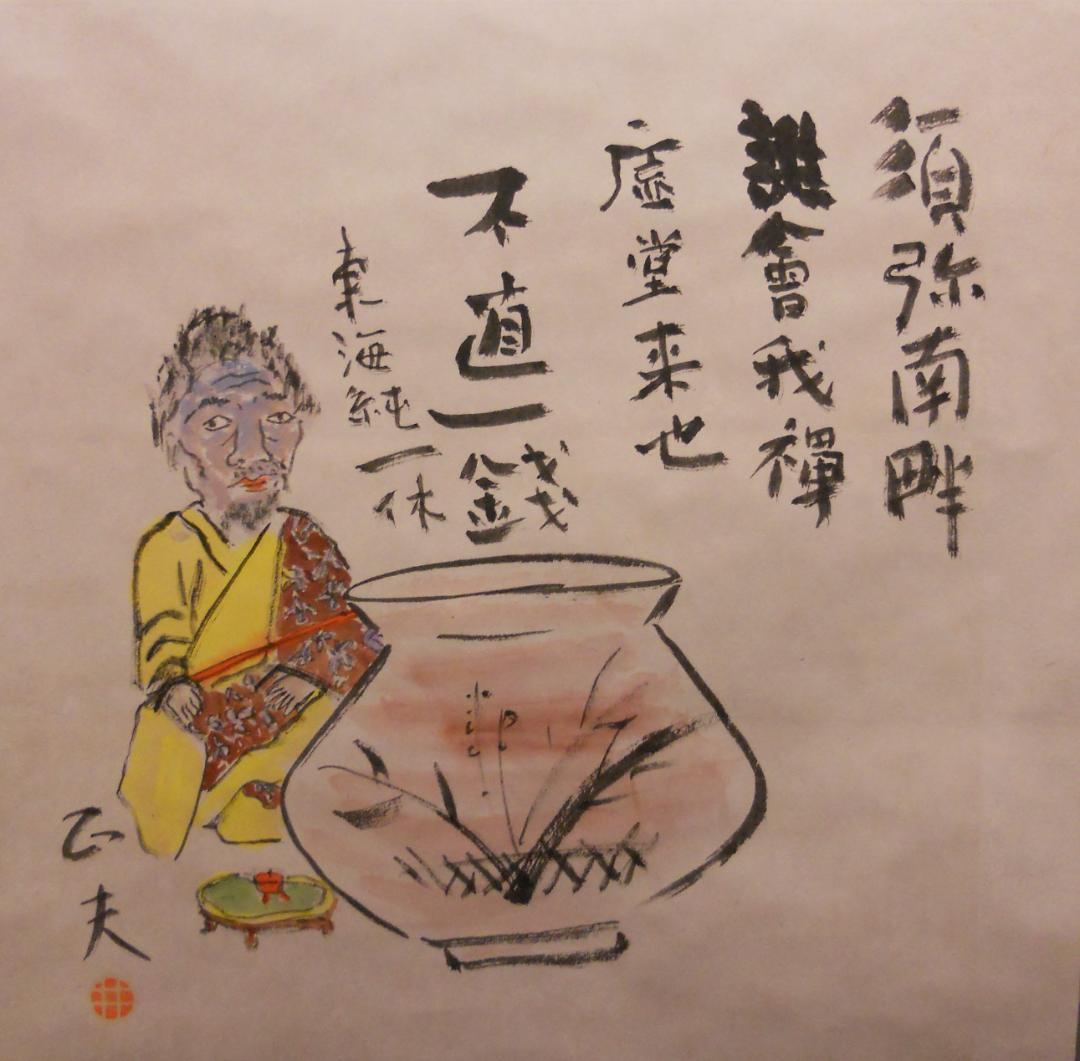 須弥南畔
誰會我禅
虚堂来也
不直一錢
東海純
一休
正夫